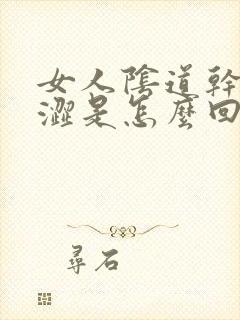 女人陰道幹
澀是怎麼回
尋石